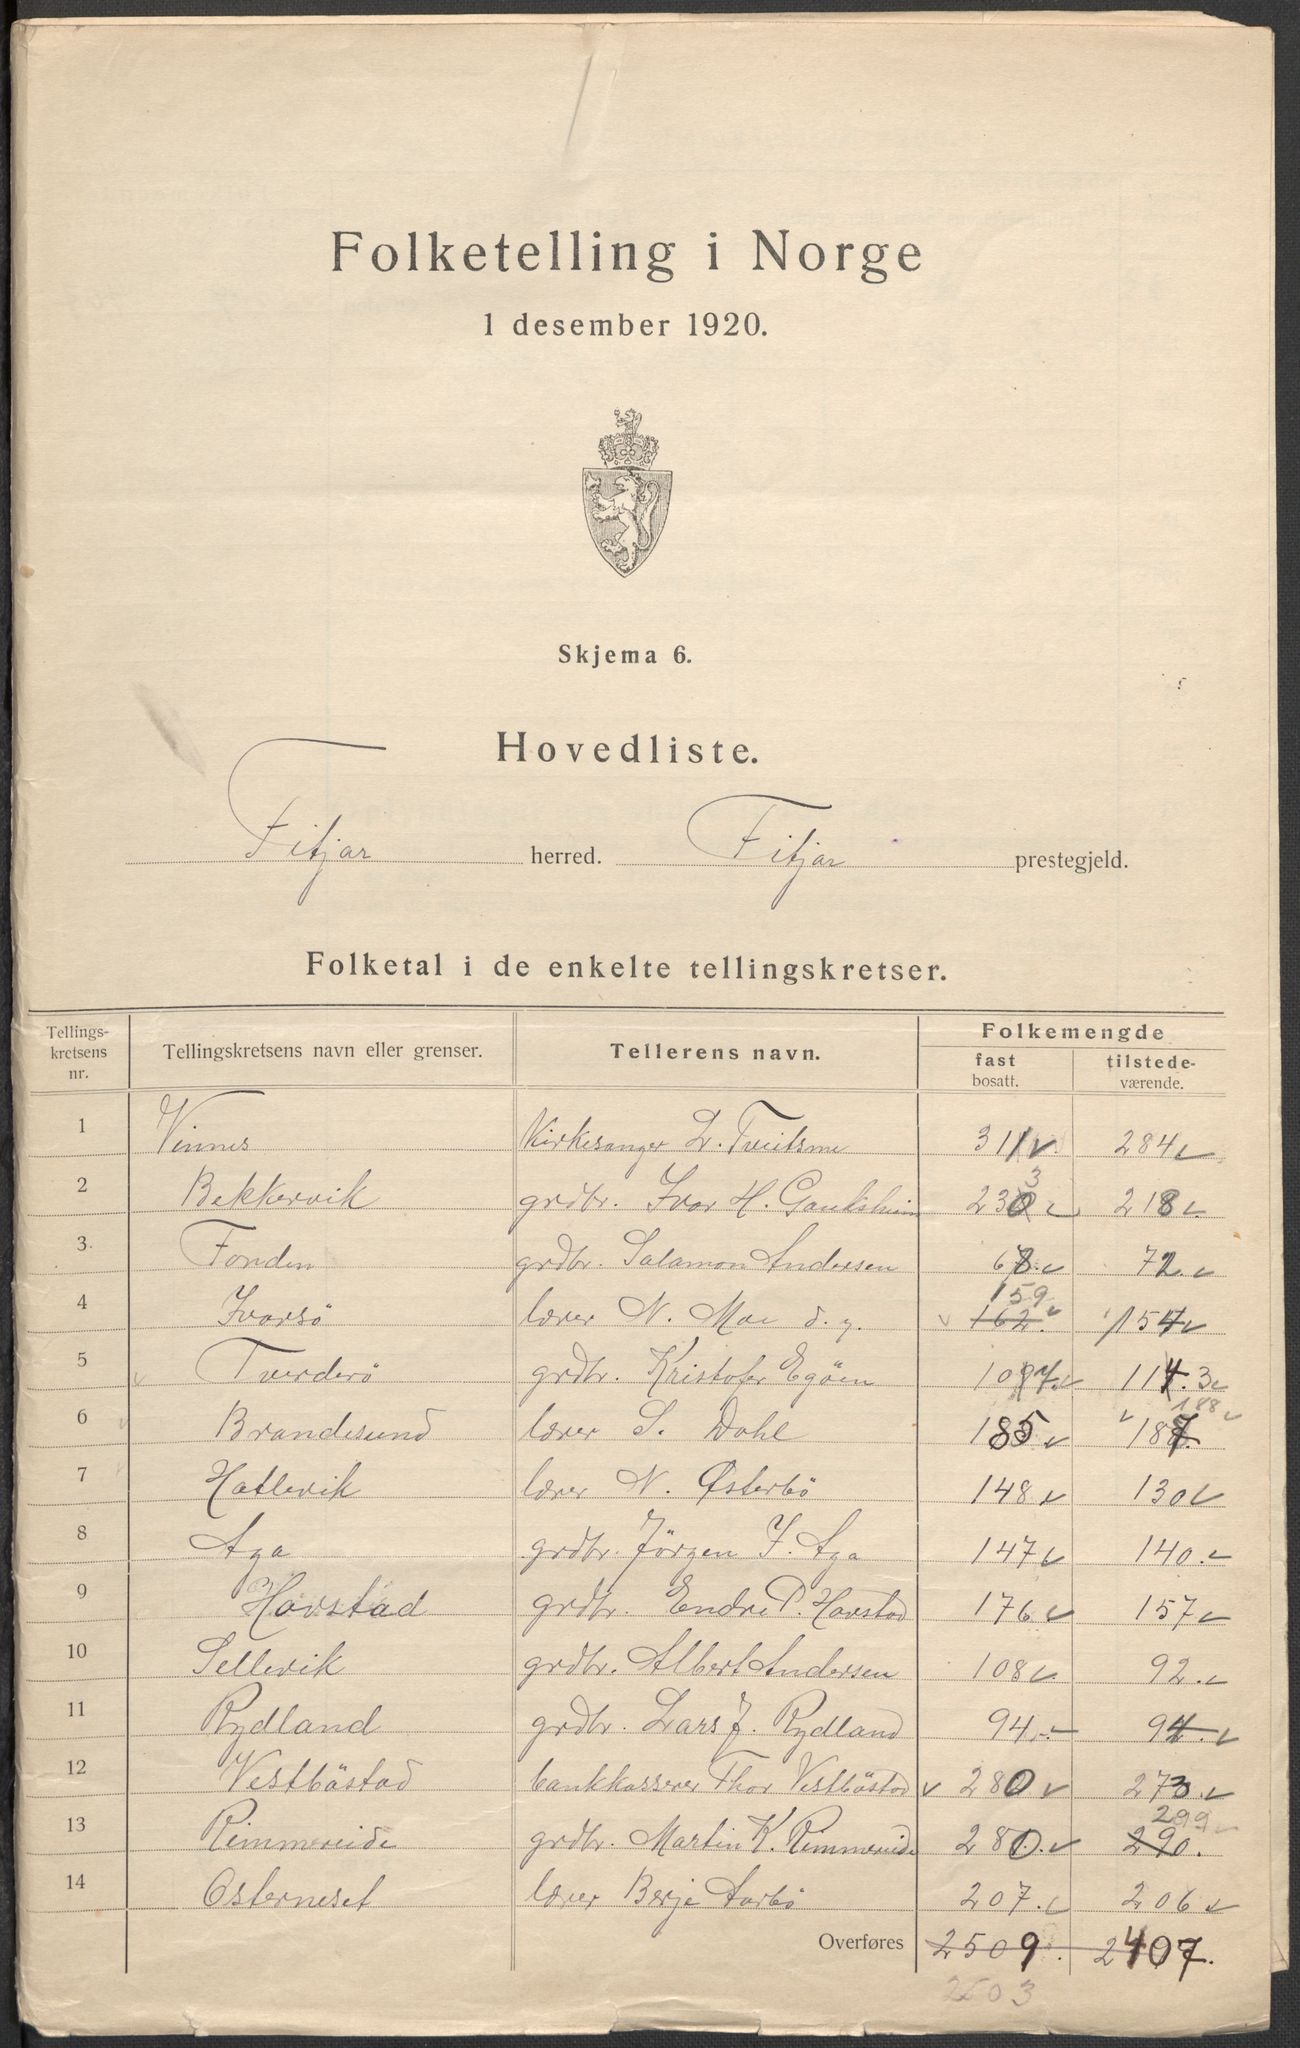 Folketelling i Norge
1 desember 1920.
Skjema 6.
Hovedliste.
Fitjar herred. Fitjar prestegjeld.
Folketal i de enkelte tellingskretser.
Tellings-
kretsens
nr.
Tellingskretsens navn eller grenser.
Tellerens navn.
Folkemengde
fast
bosatt.
tilstede-
værende.
1 Vinnes Kirkesanger L. 311 284
2 Bekkervik grdbr. Ivar H. 230 3 218
3. Fonden grdbr. Salamon Andersen 72
159
4 Ivarsö lærer N. Moe d. y. 162. 154
5 Tverderö grdbr. Kristofer Egöen 114. 3
188
6 Brandesund lærer S. Dahl 185 187
7 Hatlevik lærer N. Østerbö 148 130
8 Aga grdbr. Jörgen J. Aga 147 140.
9 Havstad grdbr. Endre P. Havstad 176 157
10 Sellevik grdbr. Albert Andersen 108 92.
11 Rydland grdbr. Lars J. Rydland 94. 94.
12 Vestböstad bankkasserer Thor Vestböstad 280 273.
299
13 Rimmereide grdbr. Martin K. Rimmereide 280. 290.
14 Osterneset lærer Berje Aarbö 207. 206
Overføres 2509. 2407.
2503